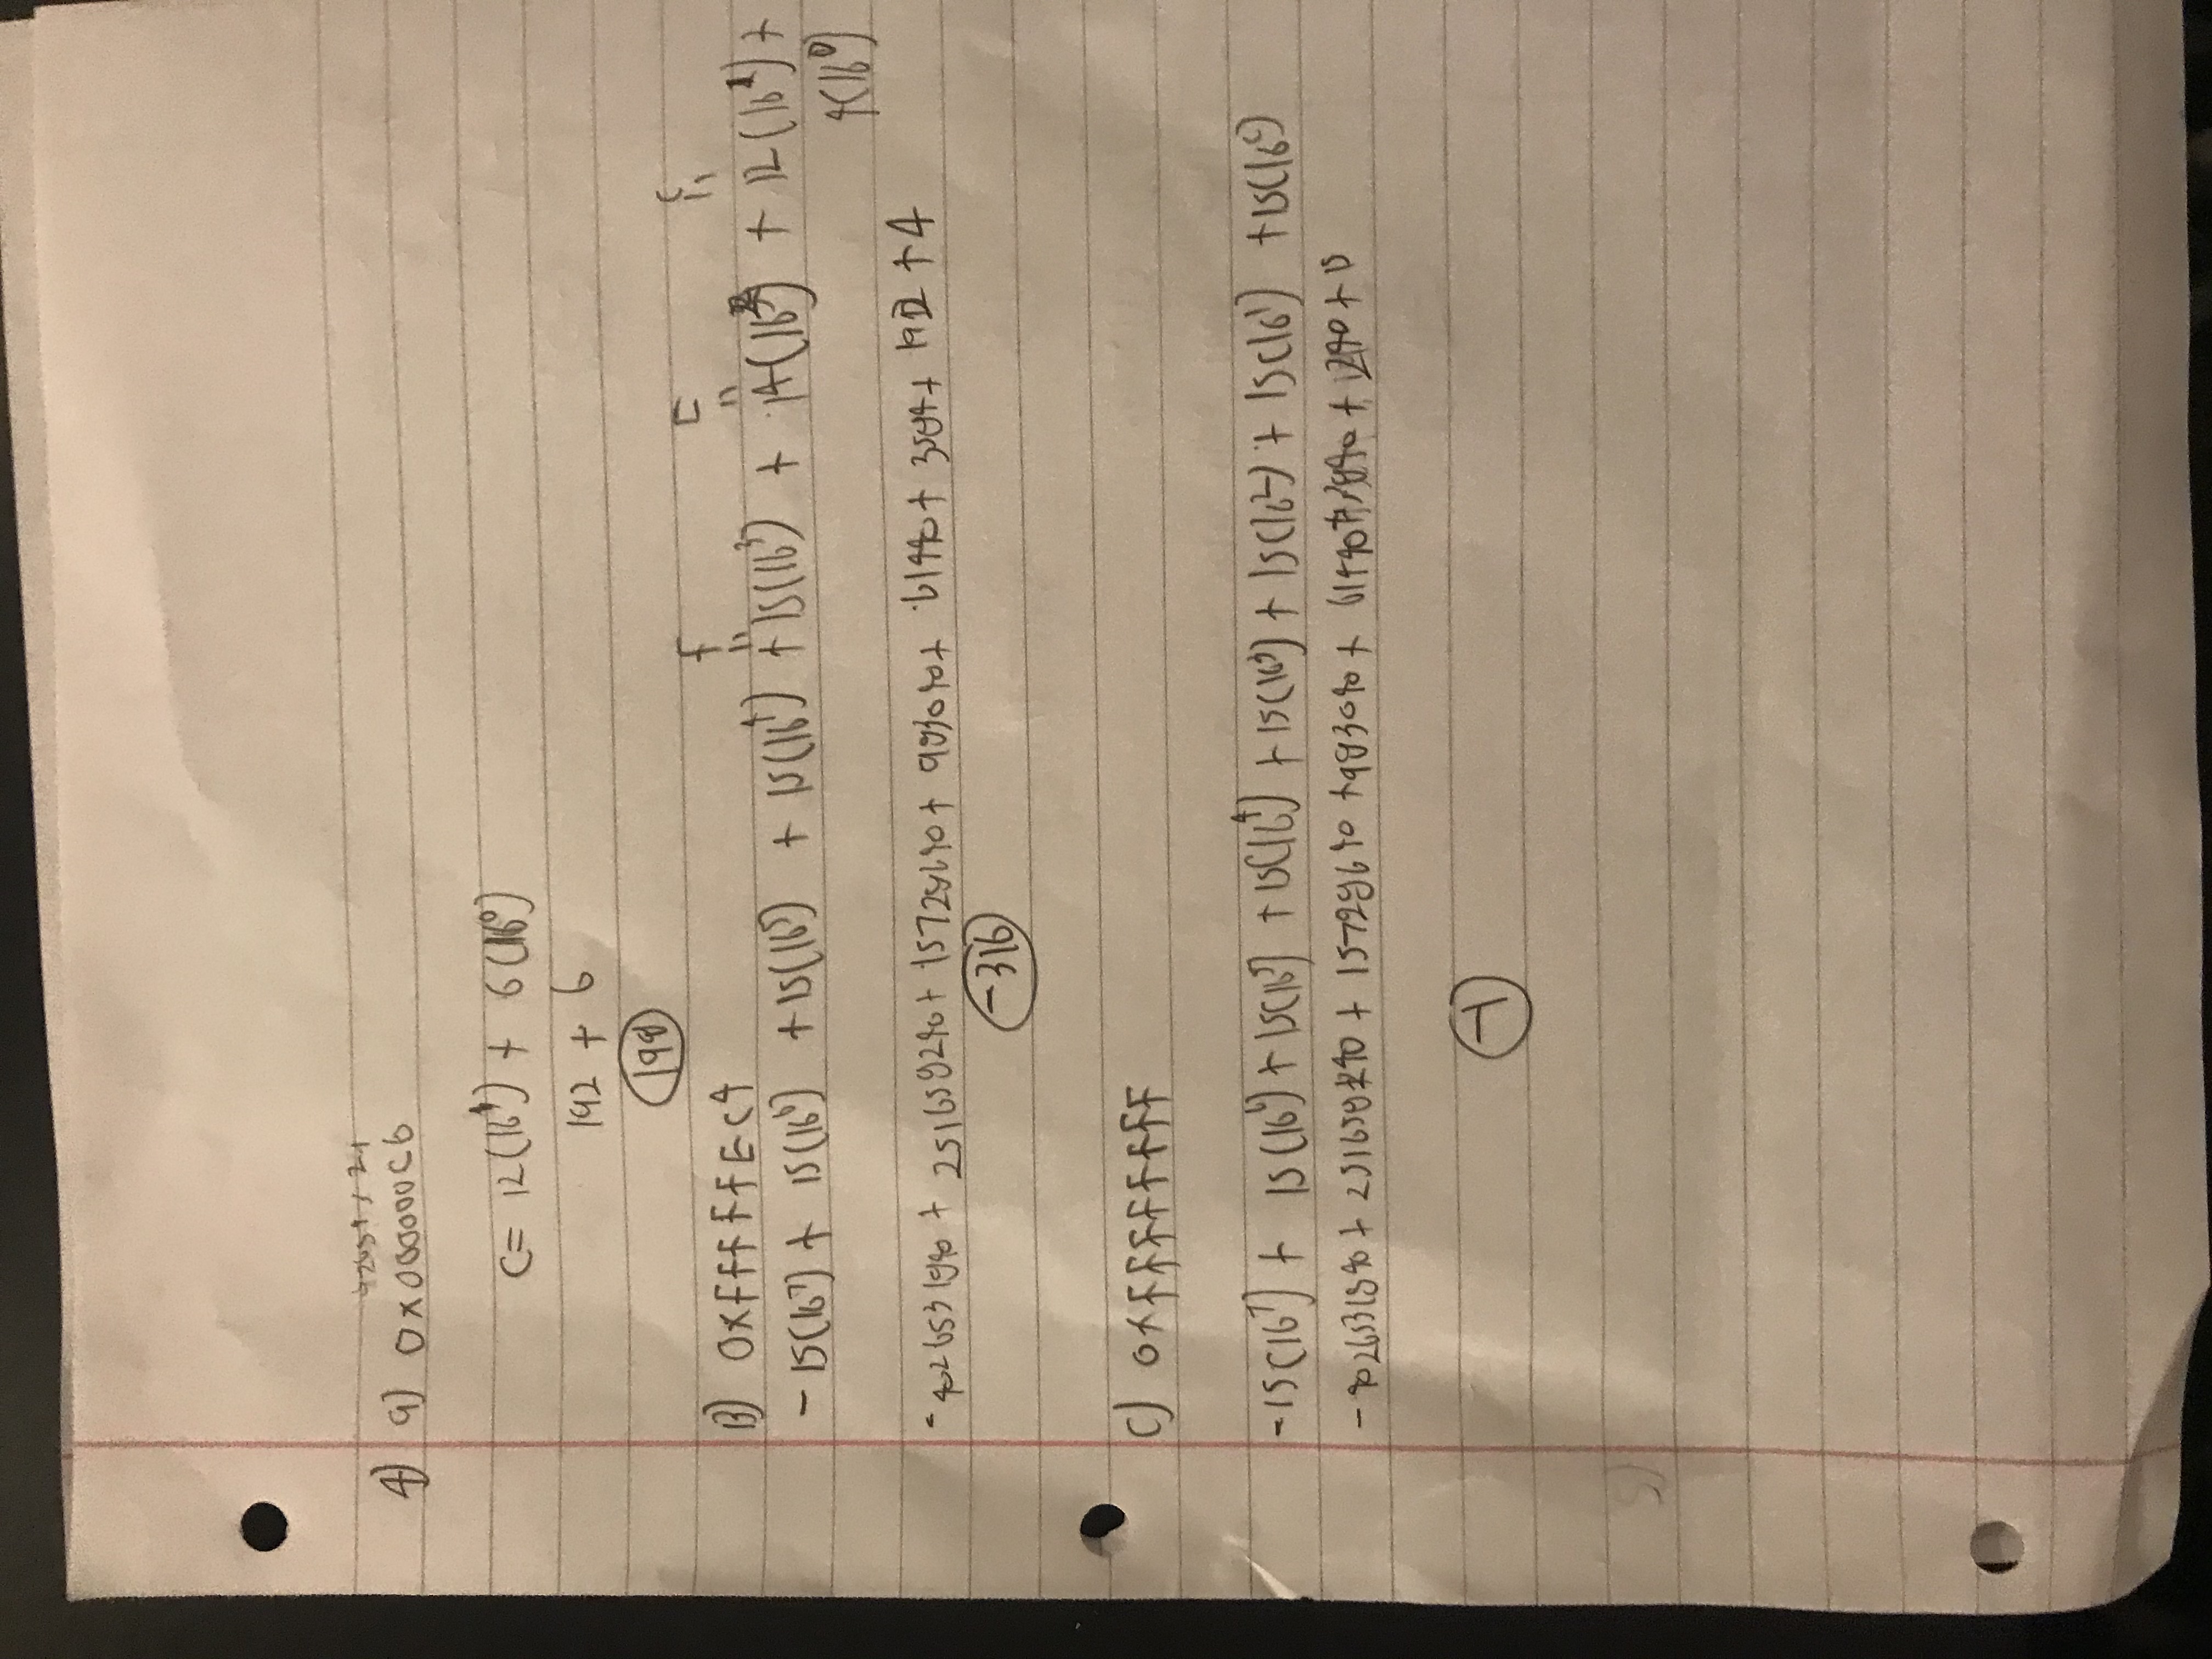 4) a) 0x000000C6
C = 12(16¹) + 6(16⁰)
192 + 6
198
F E C
B) 0xFFFFFEC4
-15(16⁷) + 15(16⁶) + 15(16⁵) + 15(16⁴) + 15(16³) + 14(16²) + 12(16¹) +
4(16⁰)
-4026531840 + 251658240 + 15728640 + 983040 + 61440 + 3584 + 192 + 4
-316
C) 0xFFFFFFFF
-15(16⁷) + 15(16⁶) + 15(16⁵) + 15(16⁴) + 15(16³) + 15(16²) + 15(16¹) + 15(16⁰)
-4026531840 + 251658240 + 15728640 + 983040 + 61440 + 3840 + 240 + 15
-1
5)